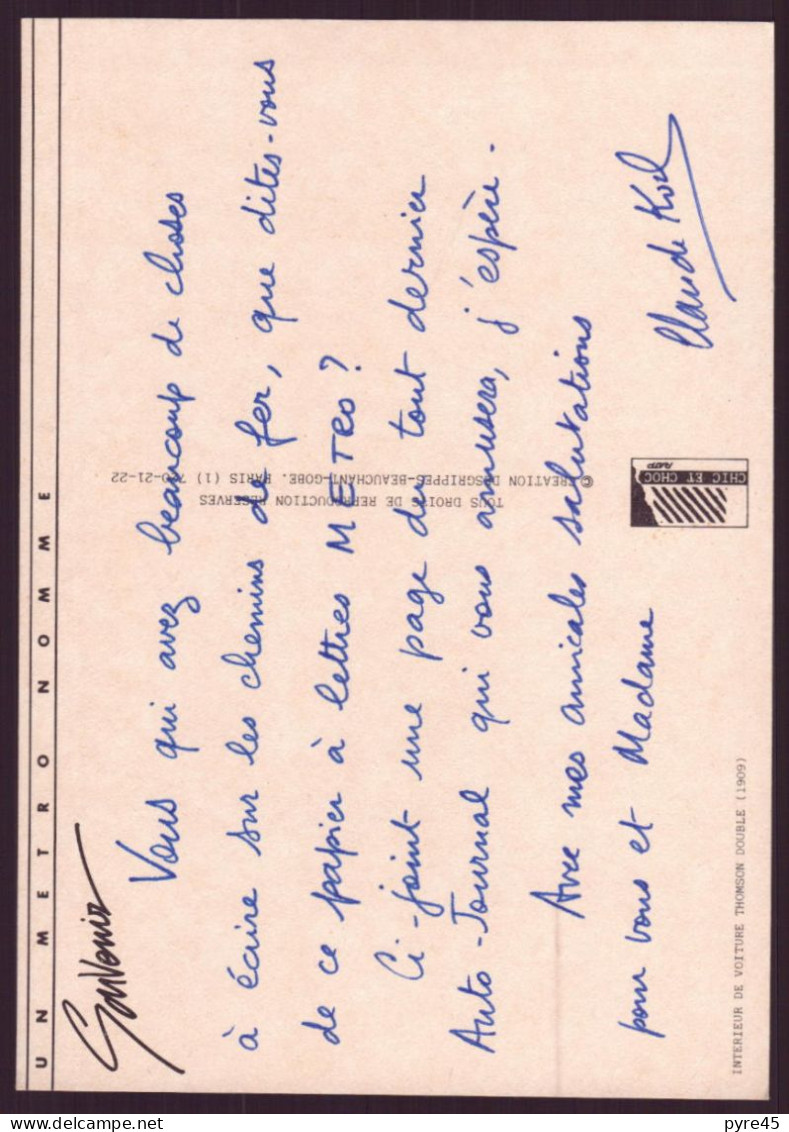 UN METRO NOMME
Souvenir
Vous qui avez beaucoup de choses
à écrire sur les chemins de fer, que dites-vous
de ce papier à lettres METRO ?
Ci-joint une page du tout dernier
Auto-Journal qui vous amusera, j'espère.
Avec mes amicales salutations
pour vous et Madame
Claude
INTERIEUR DE VOITURE THOMSON DOUBLE (1909)
TOUS DROITS DE REPRODUCTION RESERVES
© CREATION DESGRIPPES-BEAUCHANT-GOBE. PARIS (1) 21-22
CHIC ET CHOC
RATP
pyre45